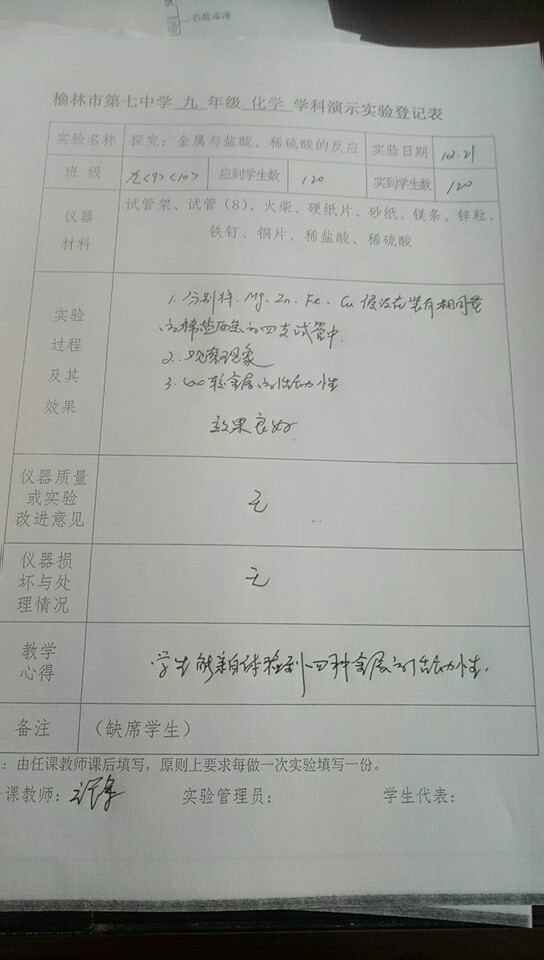 石蕊溶液
榆林市第七中学 九 年级 化学 学科演示实验登记表
实验名称 探究：金属与盐酸、稀硫酸的反应 实验日期 10.21
班 级 九<9><10> 应到学生数 120 实到学生数 120
仪器 材料
试管架、试管（8）、火柴、硬纸片、砂纸、镁条、锌粒、
铁钉、铜片、稀盐酸、稀硫酸
实验
过程
及其
效果
1. 分别将 Mg、Zn、Fe、Cu 放在装有相同量
的稀盐酸的四支试管中.
2. 观察现象
3. 比较金属的活动性
效果良好
仪器质量
或实验
改进意见
无
仪器损
坏与处
理情况
无
教学
心得
学生能亲自体验到四种金属的活动性.
备注 （缺席学生）
：由任课教师课后填写，原则上要求每做一次实验填写一份。
课教师： 实验管理员： 学生代表：